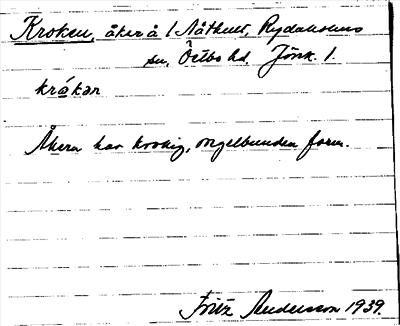 Kroken, åker å 1 Nåthult, Rydaholms
sn, Östbo hd Jönk. l.
krókər
Åkern har krokig, oregelbunden form.
Fritz Andersson 1939.